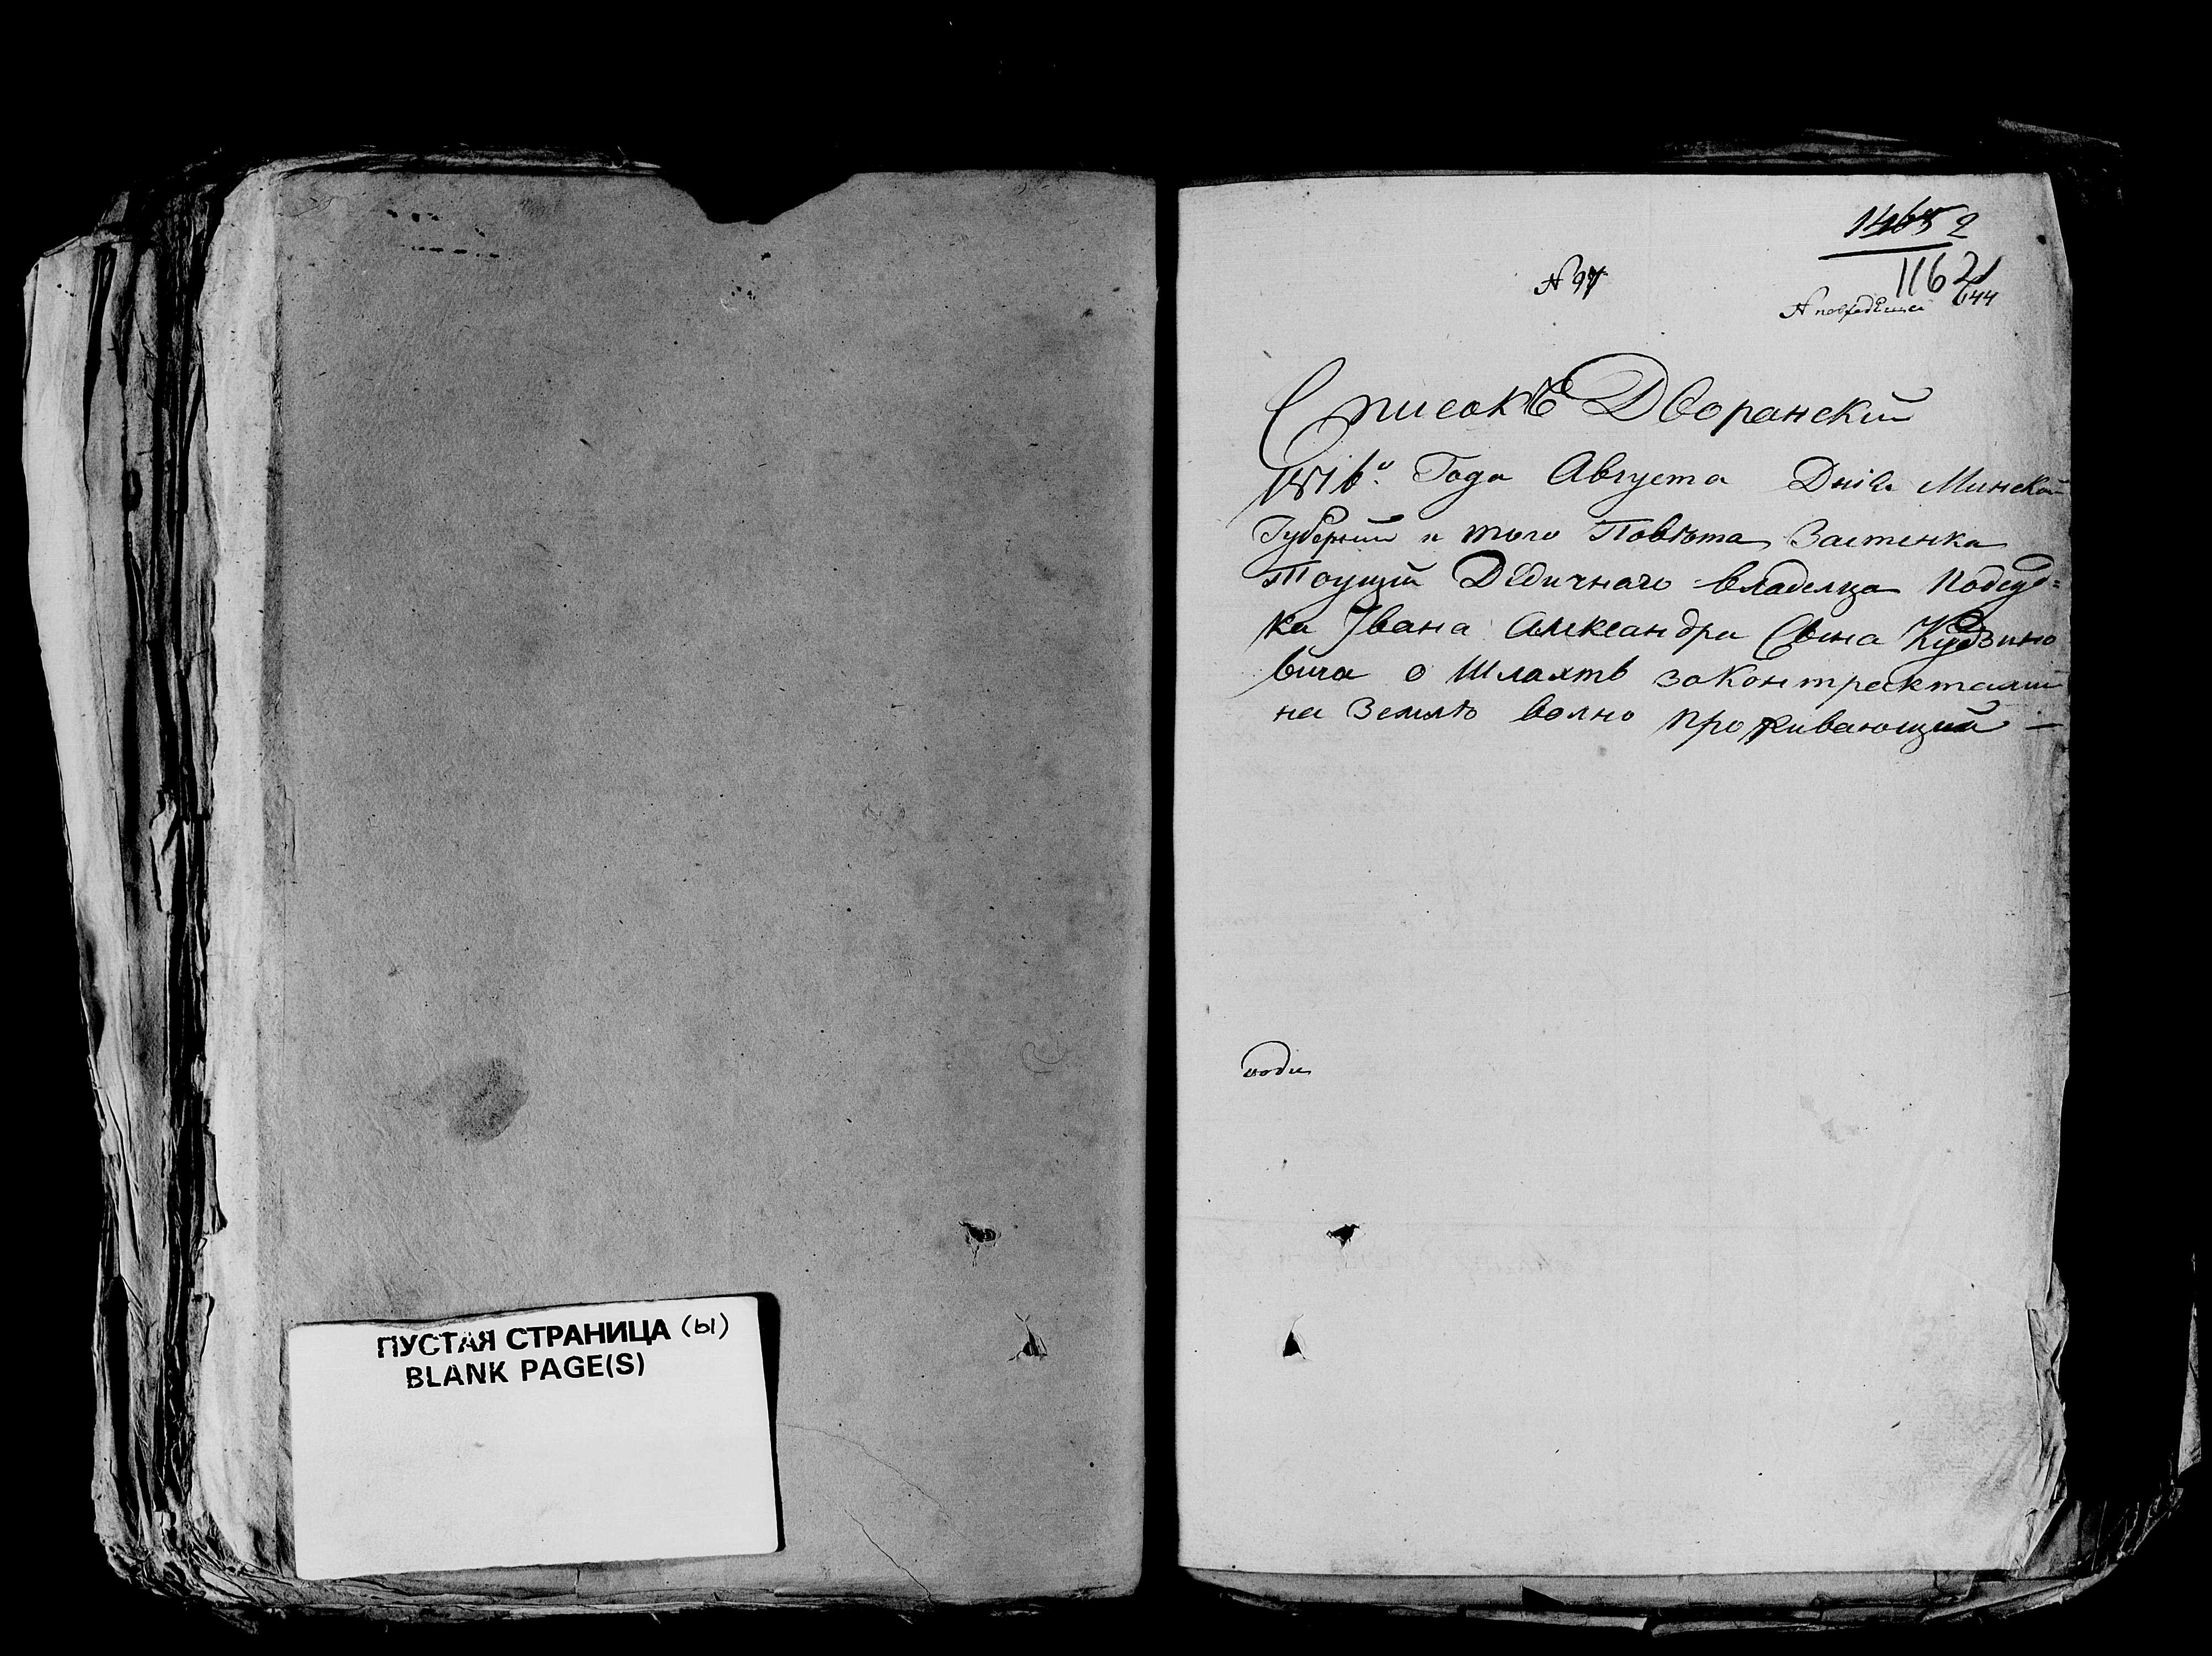 ПУСТАЯ СТРАНИЦА (ы)
BLANK PAGE(S)
1465 2
1162
№ 97
144
Списокъ Дворанский
1816го Года Августа Дніа Минской
Губернии и того Повѣта Застенка
Тоущи Дѣдичнаго владелца Подсуд=
ка Iвана Александра Сына Кудзино
вича о Шляхтѣ законтрактами
на Землѣ волно проживающий —